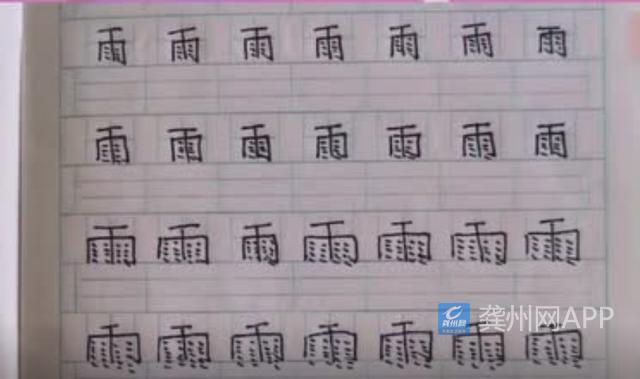 雨雨雨雨雨雨雨
雨雨雨雨雨雨雨
雨雨雨雨雨雨雨
雨雨雨雨雨雨雨
龚州网APP
龚州网